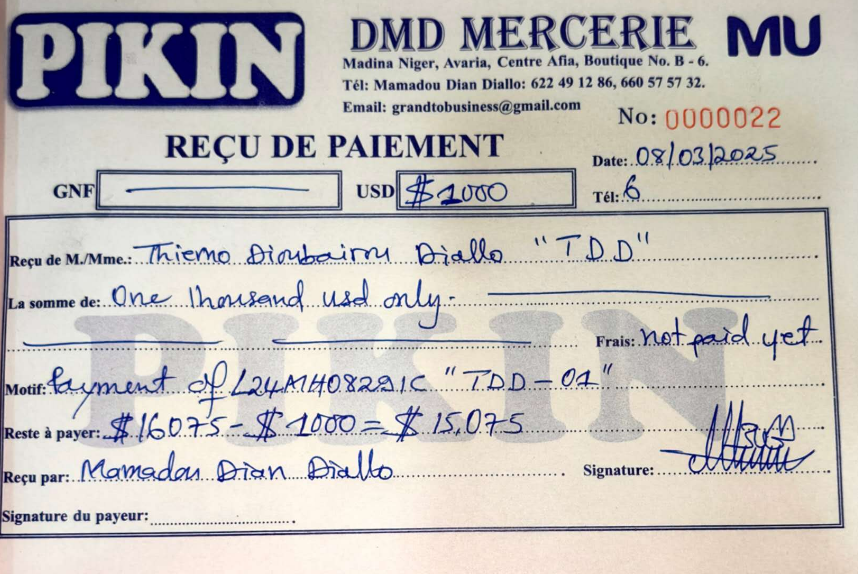 PIKIN
DMD MERCERIE MU
Madina Niger, Avaria, Centre Afia, Boutique No. B - 6.
Tél: Mamadou Dian Diallo: 622 49 12 86, 660 57 57 32.
Email: grandtobusiness@gmail.com
No: 0000022
REÇU DE PAIEMENT
Date: 08/03/2025
GNF USD $1000 Tél: 6
Reçu de M./Mme.: Thierno Dioubairou Diallo "TDD"
La somme de: One thousand usd only.
PIKIN
Frais: not paid yet
Motif: Payment of L24A1408291C "TDD-01"
Reste à payer: $16075 - $1000 = $15,075
Reçu par: Mamadou Dian Diallo Signature:
Signature du payeur: